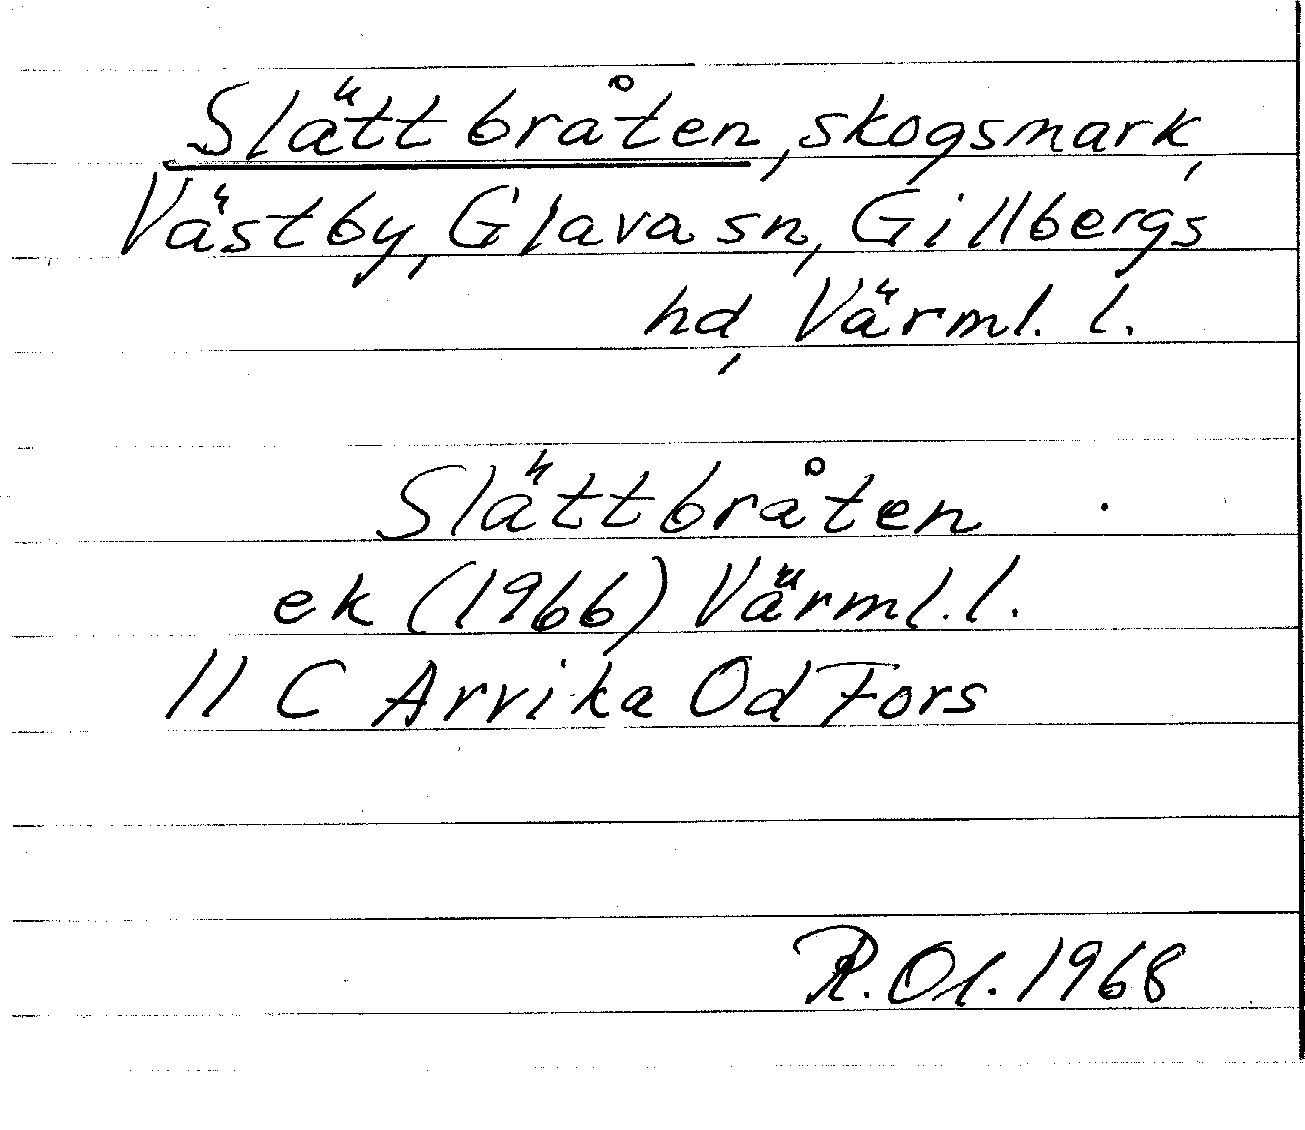 Slättbråten, skogsmark,
Västby, Glava sn, Gillbergs
hd, Värml. l.
Slättbråten
ek (1966) Värml. l.
11 C Arvika Od Fors
R. Ol. 1968